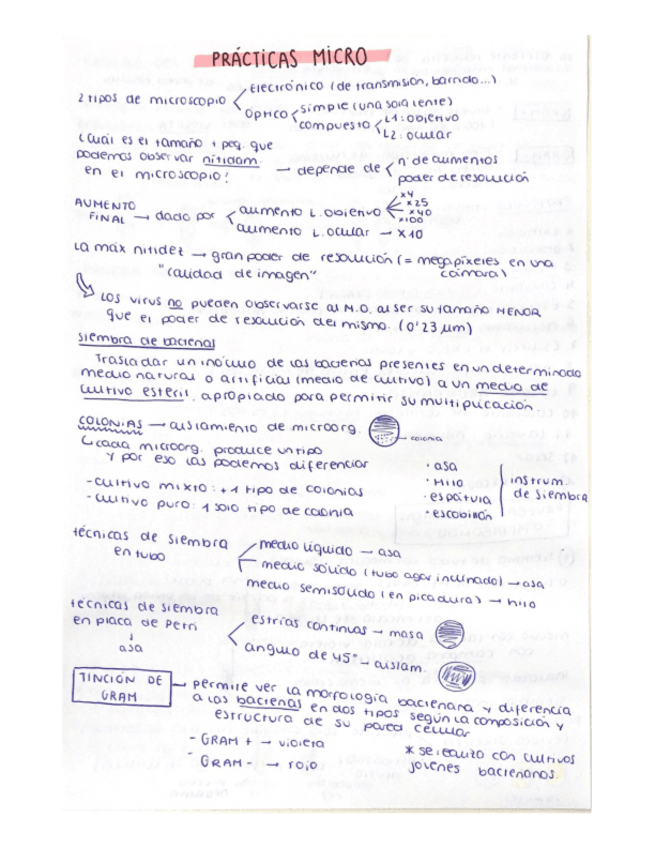 PRÁCTICAS MICRO
2 tipos de microscopio
Electrónico (de transmisión, barrido...)
Óptico
simple (una sola lente)
compuesto
L1: objetivo
L2: ocular
¿Cuál es el tamaño + peq. que
podemos observar nítidam.
en el microscopio?
→ depende de
nº de aumentos
poder de resolución
AUMENTO
FINAL → dado por
aumento L. objetivo
x4
x25
x40
x100
aumento L. ocular → x10
La máx nitidez → gran poder de resolución (= megapíxeles en una
"calidad de imagen"
cámara)
Los virus no pueden observarse al M.O. al ser su tamaño MENOR
que el poder de resolución del mismo. (0'23 µm)
Siembra de bacterias
Trasladar un inóculo de las bacterias presentes en un determinado
medio natural o artificial (medio de cultivo) a un medio de
cultivo estéril, apropiado para permitir su multiplicación
COLONIAS → aislamiento de microorg.
colonia
cada microorg. produce un tipo
y por eso las podemos diferenciar
- cultivo mixto: + 1 tipo de colonias
- cultivo puro: 1 solo tipo de colonia
· asa
· Hilo
· espátula
· escobillón
instrum.
de siembra
técnicas de siembra
en tubo
medio líquido → asa
medio sólido (tubo agar inclinado) → asa
medio semisólido (en picadura) → hilo
técnicas de siembra
en placa de Petri
↓
asa
estrías continuas → masa
angulo de 45° → aislam.
TINCIÓN DE
GRAM
→ permite ver la morfología bacteriana y diferencia
a las bacterias en dos tipos según la composición y
estructura de su pared celular
- GRAM + → violeta
- GRAM - → rojo
* se realiza con cultivos
jóvenes bacterianos.